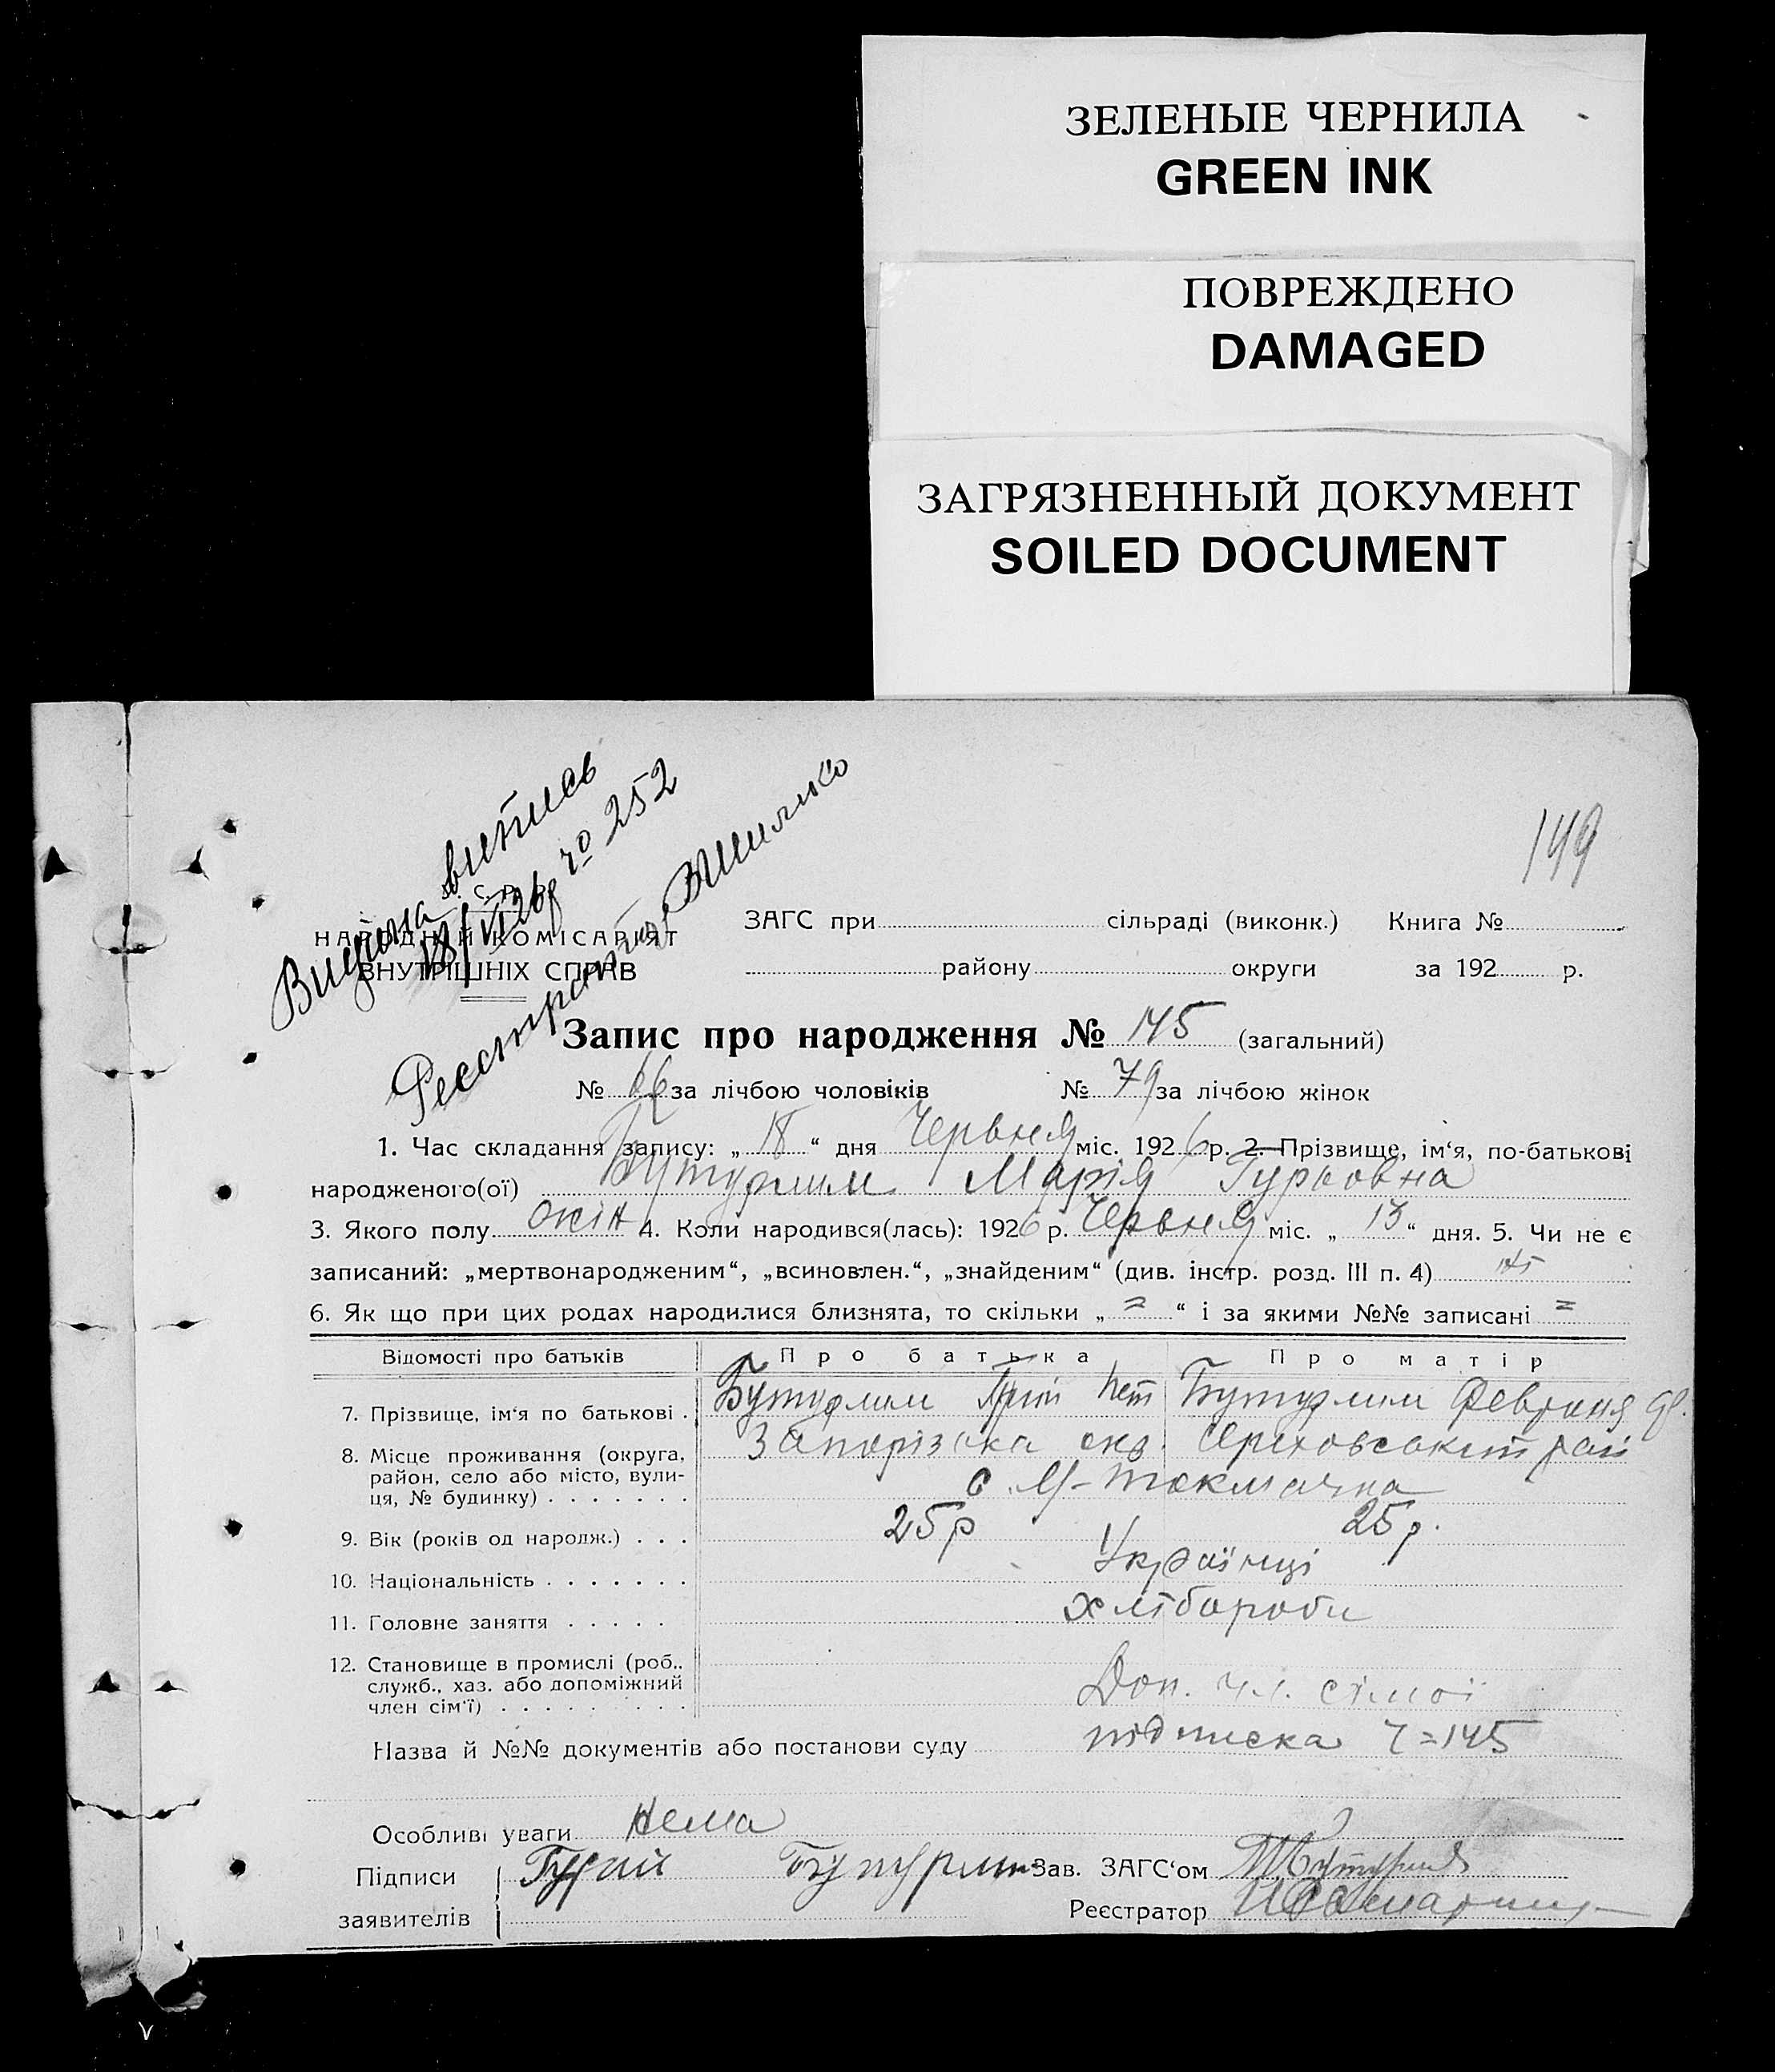 ЗЕЛЕНЫЕ ЧЕРНИЛА
GREEN INK
ПОВРЕЖДЕНО
DAMAGED
ЗАГРЯЗНЕННЫЙ ДОКУМЕНТ
SOILED DOCUMENT
149
Видана випись
18/VI 26р № 252
Реєстратор
НАРОДНІЙ КОМІСАРІЯТ
ВНУТРІШНІХ СПРАВ
ЗАГС при сільраді (виконк.) Книга №
району округи за 192 р.
Запис про народження № 145 (загальний)
№ 66 за лічбою чоловіків № 79 за лічбою жінок
1. Час складання запису: „ 18 “ дня Червня міс. 1926 р. 2. Прізвище, ім‘я, по-батькові
народженого(ої) Бутурлим Марія Гурьовна
3. Якого полу жін 4. Коли народився(лась): 1926 р. Червня міс. „ 13 “ дня. 5. Чи не є
записаний: „мертвонародженим“, „всиновлен.“, „знайденим“ (див. інстр. розд. III п. 4)
6. Як що при цих родах народилися близнята, то скільки „ = “ і за якими №№ записані =
Відомості про батьків Про батька Про матір
7. Прізвище, ім‘я по батькові . Бутурлим Пет Бутурлим Февронія
8. Місце проживання (округа, Запорізька окр. Оріховський рай
район, село або місто, вули-
ця, № будинку) . . . . . . . с. М-Токмачка
9. Вік (років од народж.) . . . 25р 25р.
10. Національність . . . . . . . Українці
11. Головне заняття . . . . . хлібороби
12. Становище в промислі (роб..
служб., хаз. або допоміжний Доп. чл. сімої
член сім‘ї) . . . . . . . . .
Назва й №№ документів або постанови суду підписка ч=145
Особливі уваги Нема
Підписи Гурій Бутурлим Зав. ЗАГС‘ом
заявителів Реєстратор